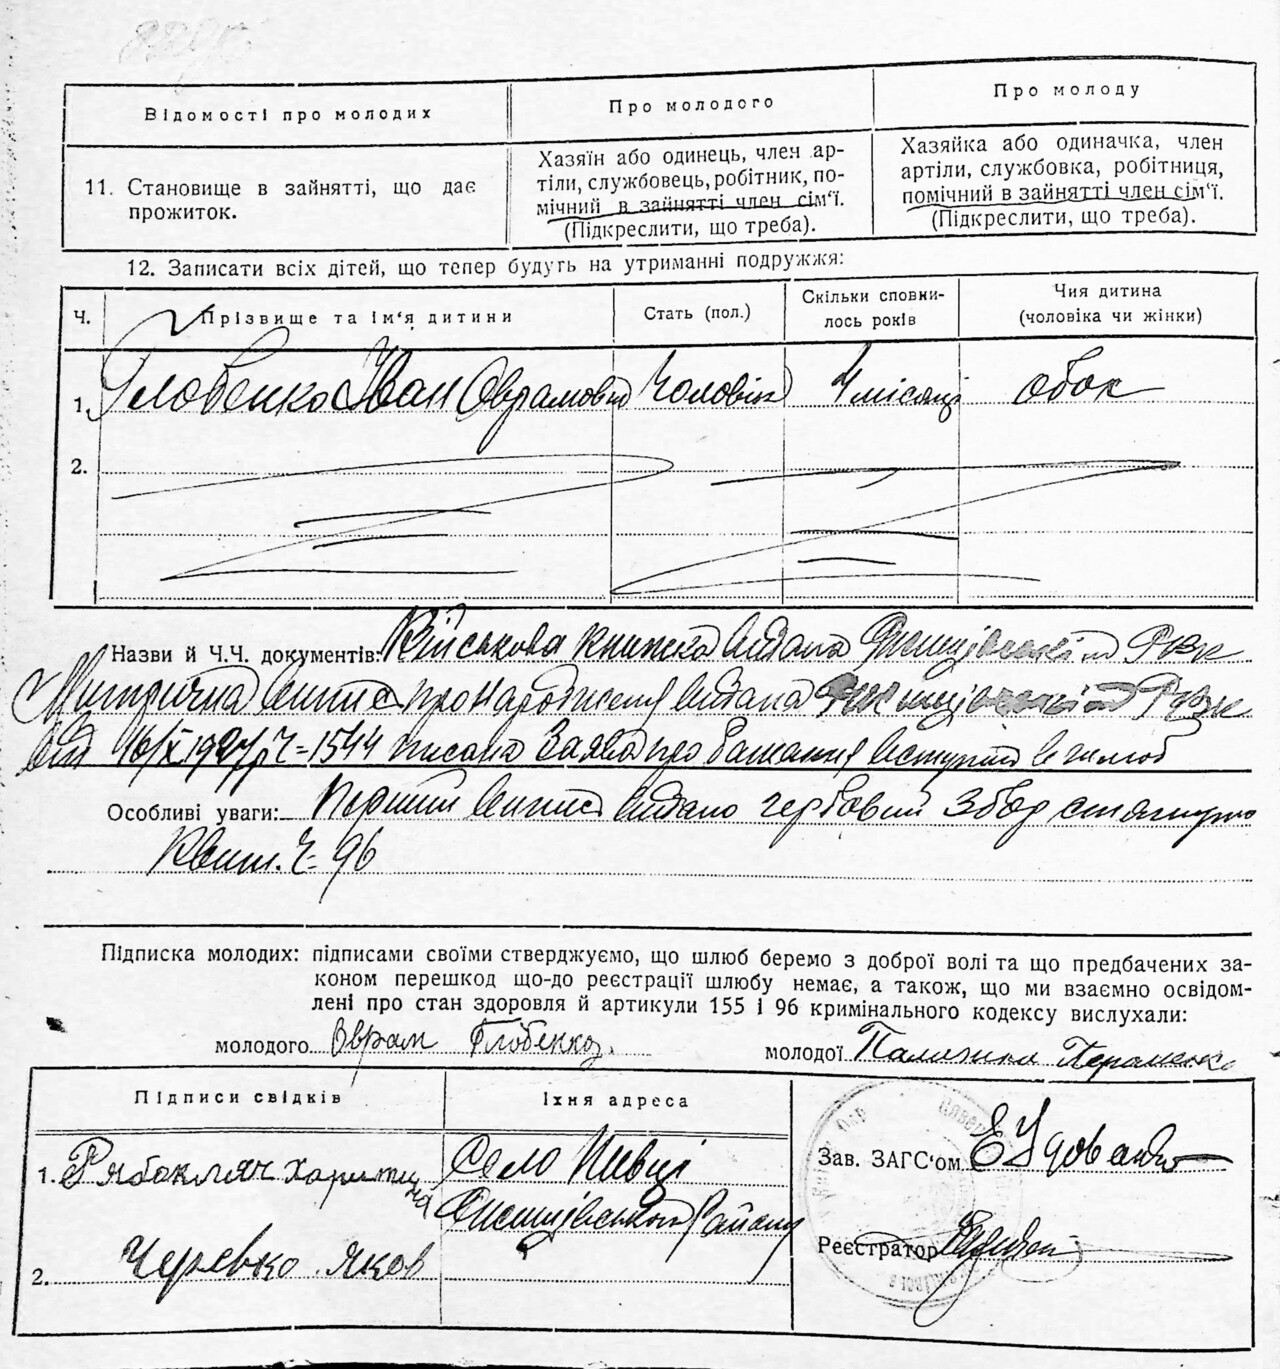 Відомості про молодих
Про молодого
Про молоду
11. Становище в зайнятті, що дає
прожиток.
Хазяїн або одинець, член ар-
тіли, службовець, робітник, по-
мічний в зайнятті член сім'ї.
(Підкреслити, що треба).
Хазяйка або одиначка, член
артіли, службовка, робітниця,
помічний в зайнятті член сім'ї.
(Підкреслити, що треба).
12. Записати всіх дітей, що тепер будуть на утриманні подружжя:
Ч.
Прізвище та ім'я дитини
Стать (пол.)
Скільки сповни-
лось років
Чия дитина
(чоловіка чи жінки)
1. Глобенко Іван Оврамови
4 місяці
обок
2.
Назви й Ч.Ч. документів: Військова книжка видана РВК
Метрична випис про народження видана
від 16/X 1927р Ч=1544 писана Заява про бажання вступити в шлюб
Особливі уваги: Перший випис видано гербовий Збор стягнуто
Квит. Ч=96
Підписка молодих: підписами своїми стверджуємо, що шлюб беремо з доброї волі та що предбачених за-
коном перешкод що-до реєстрації шлюбу немає, а також, що ми взаємно освідом-
лені про стан здоров'я й артикули 155 і 96 кримінального кодексу вислухали:
молодого Оврам Глобенко.
молодої
Підписи свідків
Їхня адреса
1. Рябокляч Харитина
Село Пивці
Району
2. Черевко Яков
Зав. ЗАГС'ом
Реєстратор